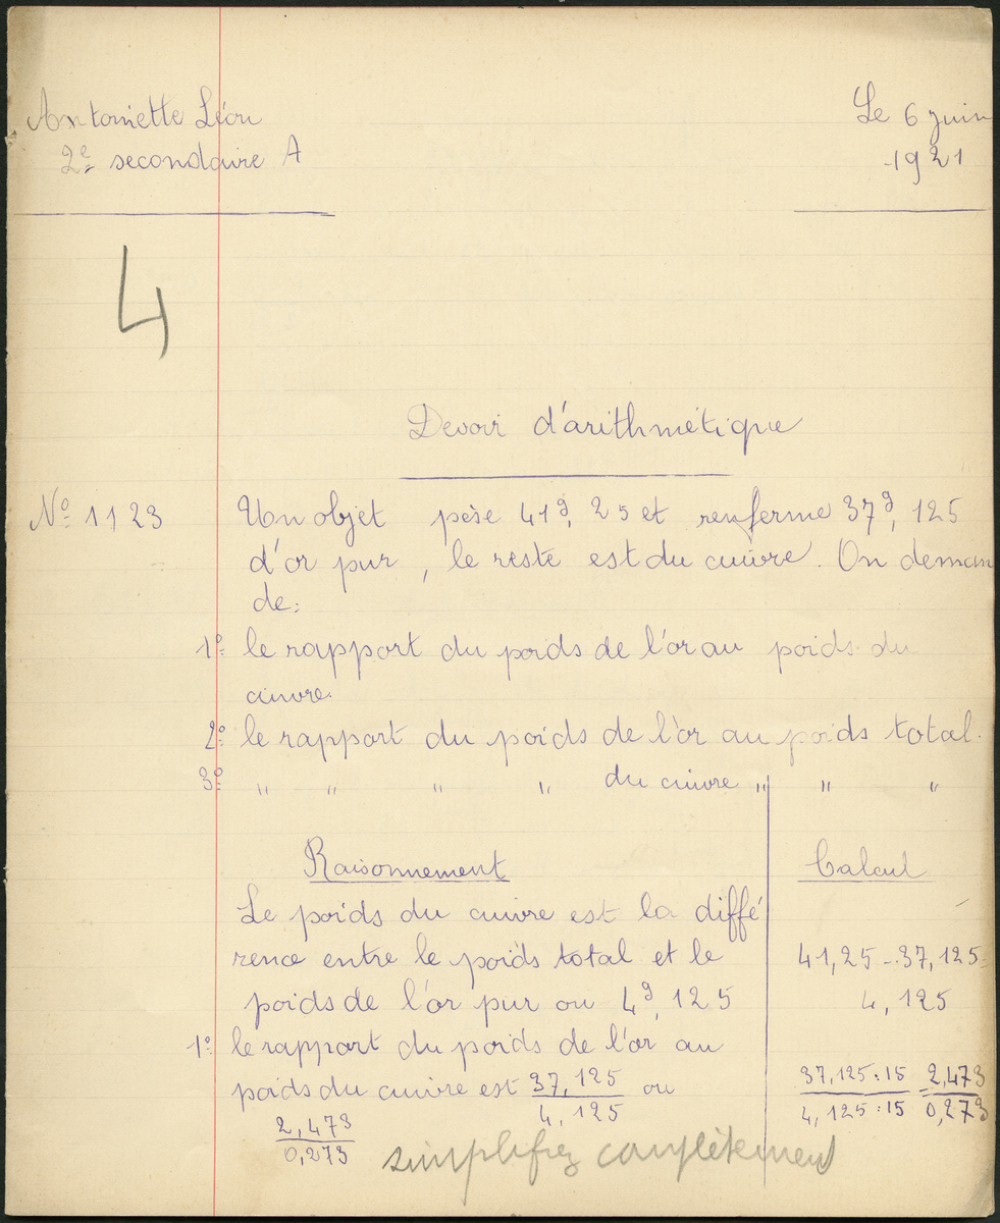 Antoinette Léon
Le 6 juin
2e secondaire A
1921
4
Devoir d'arithmétique
No 1123 Un objet pèse 41g, 25 et renferme 37g, 125
d'or pur, le reste est du cuivre. On deman
de:
1o le rapport du poids de l'or au poids du
cuivre.
2o le rapport du poids de l'or au poids total.
3o " " " " du cuivre " " "
Raisonnement
Calcul
Le poids du cuivre est la diffé
rence entre le poids total et le
poids de l'or pur ou 4g, 125
41,25 - 37,125 =
4, 125
1o le rapport du poids de l'or au
poids du cuivre est 37,125 / 4,125 ou
2,473 / 0,273
37,125:15 / 4,125:15 = 2,473 / 0,273
simplifiez complètement